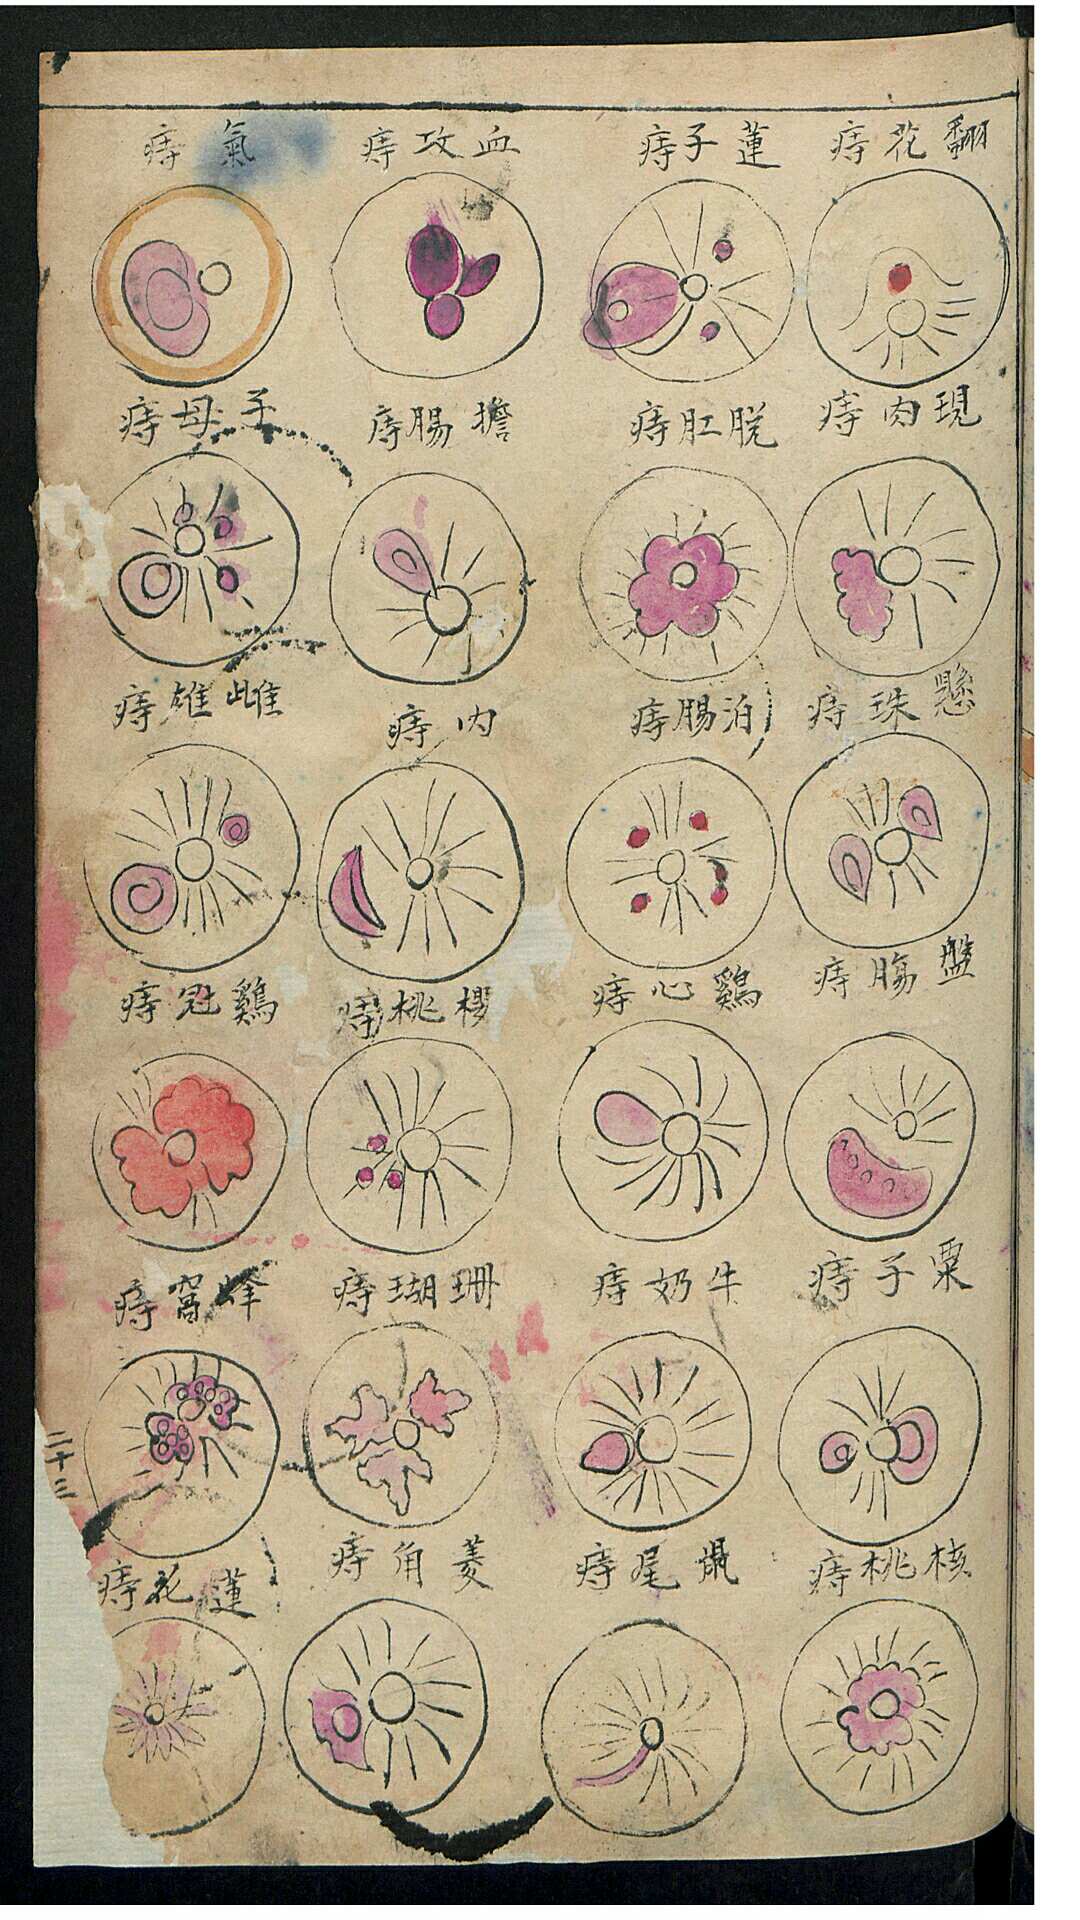 翻花痔
蓮子痔
血攻痔
氣痔
現肉痔
脫肛痔
擔腸痔
子母痔
懸珠痔
泊腸痔
內痔
雌雄痔
盤腸痔
鷄心痔
櫻桃痔
鷄冠痔
粟子痔
牛奶痔
珊瑚痔
蜂窩痔
核桃痔
鼠尾痔
菱角痔
蓮花痔
二十三